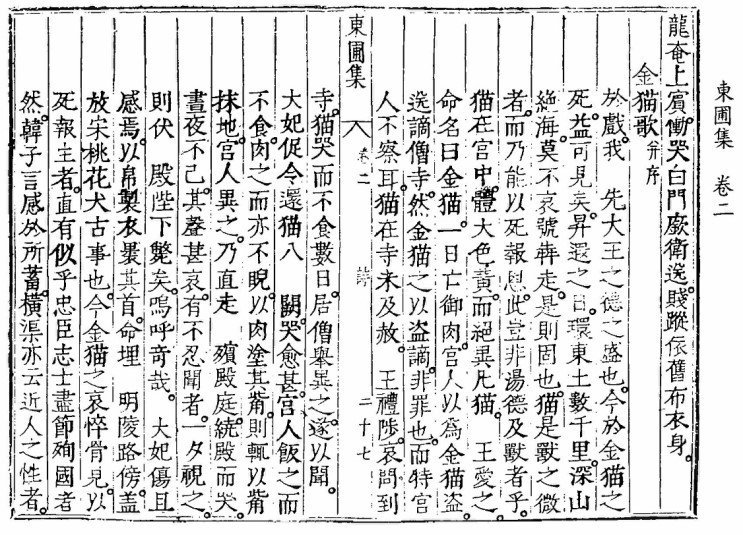 東圃集 卷二
龍奄上賓慟哭白門廞衛送賤蹤依舊布衣身。
金猫歌 幷序
於戲我 先大王之德之盛也。今於金猫之
死。益可見矣。昇遐之日。環東土數千里。深山
絶海。莫不哀號犇走。是則固也。猫是獸之微
者。而乃能以死報恩。此豈非湯德及獸者乎。
猫在宮中。體大色黃。而絕異凡猫。 王愛之。
命名曰金猫。一日亡御肉。宮人以爲金猫盜。
送謫僧寺。然金猫之以盜謫。非罪也。而特宮
人不察耳。猫在寺未及赦。 王禮陟。哀問到
東圃集 卷二 詩 二十七
寺。猫哭而不食數日。居僧擧異之。遂以聞。
大妃促令還猫入 闕。哭愈甚。宮人飯之而
不食。肉之而亦不睨。以肉塗其觜。則輒以觜
抹地。宮人異之。乃直走 殯殿庭。繞殿而哭。
晝夜不已。其聲甚哀。有不忍聞者。一夕視之。
則伏 殿陛下斃矣。嗚呼奇哉。 大妃傷且
感焉。以帛製衣褁其首。命埋 明陵路傍。盖
放宋桃花犬古事也。今金猫之哀悴骨見。以
死報主者。直有似乎忠臣志士盡節殉國者
然。韓子言感於所蓄。橫渠亦云近人之性者。